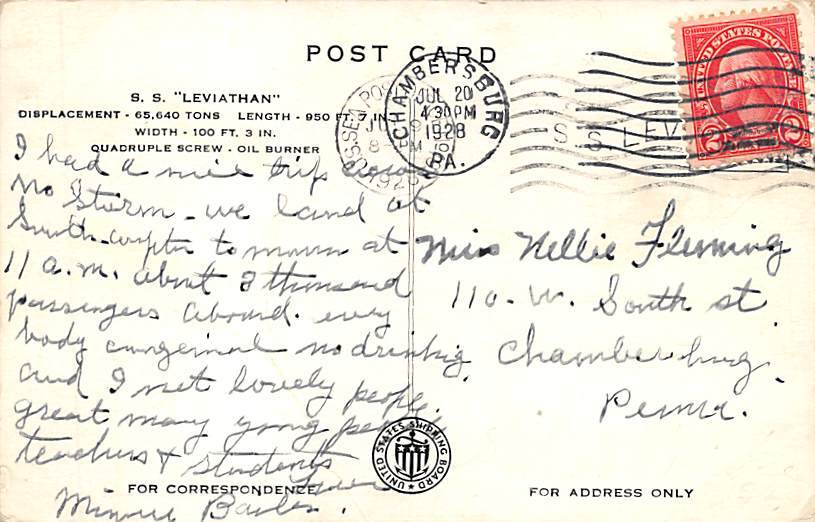 POST CARD
S. S. "LEVIATHAN"
DISPLACEMENT - 65,640 TONS LENGTH - 950 FT. 7 IN.
WIDTH - 100 FT. 3 IN.
QUADRUPLE SCREW - OIL BURNER
CHAMBERSBURG
JUL 20
4 30 PM
1928
PA.
S S LEV
UNITED STATES POSTAGE
2 2
I had a nice trip
no Storm - we land at
to morrow at
11 a.m. about 2 thousand
passengers aboard. every
body congenial no drinking
and I met lovely people.
great many young people
teachers & students
Minnie
Miss Nellie Fleming
110. W. South st.
Chambersburg.
Penna.
UNITED STATES SHIPPING BOARD
FOR CORRESPONDENCE
FOR ADDRESS ONLY